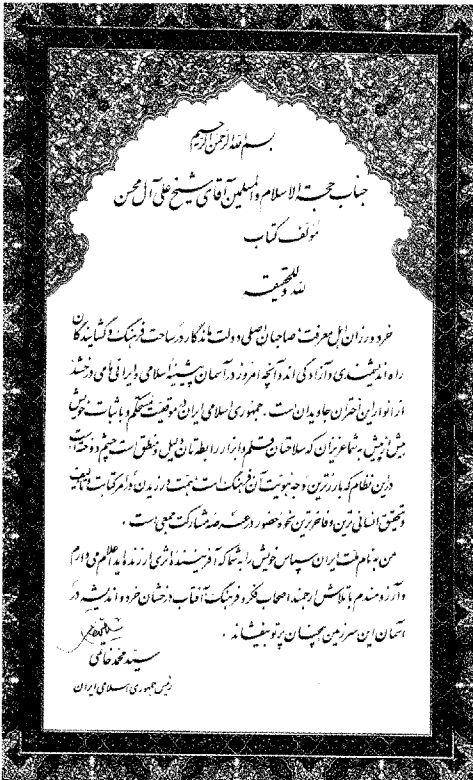 بسم الله الرحمن الرحیم
جناب حجة الاسلام والمسلمین آقای شیخ علی آل محسن
مؤلف کتاب
لله وللحقیقة
خردورزان اهل معرفت، صاحبان اصلی دولت ماندگار در ساحت فرهنگ و گشایندگان
راه اندیشمندی و آزادگی اند و آنچه امروز در آسمان پیشینهٔ اسلامی و ایرانی ما می درخشد
از انوار این اختران جاویدان است. جمهوری اسلامی ایران در موقعیت مستحکم و با ثبات خویش
بیش از پیش به شما عزیزان که سلاحتان قلم و ابزار رابطه تان دلیل و منطق است چشم دوخته است.
در این نظام که بارزترین وجه هویت آن فرهنگ است همت ورزیدن در امر کتابت و تألیف
و تحقیق انسانی ترین و فاخرترین نحوهٔ حضور در عرصهٔ مشارکت جمعی است.
من به نام ملت ایران سپاس خویش را به شما که آفرینندهٔ اثری ارزنده اید اعلام می دارم
و آرزومندم با تلاش ارجمند اصحاب فکر و فرهنگ آفتاب درخشان خرد و اندیشه در
آسمان این سرزمین همچنان پرتو بیفشاند.
سید محمد خاتمی
رئیس جمهوری اسلامی ایران